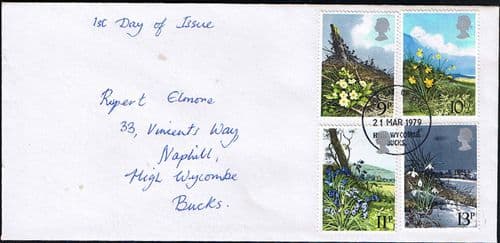 1st Day of Issue
Rupert Elmore
33, Vincents Way,
Naphill,
High Wycombe
Bucks.
9P
10P
21 MAR 1979
WYCOMBE
BUCKS.
11P
13P